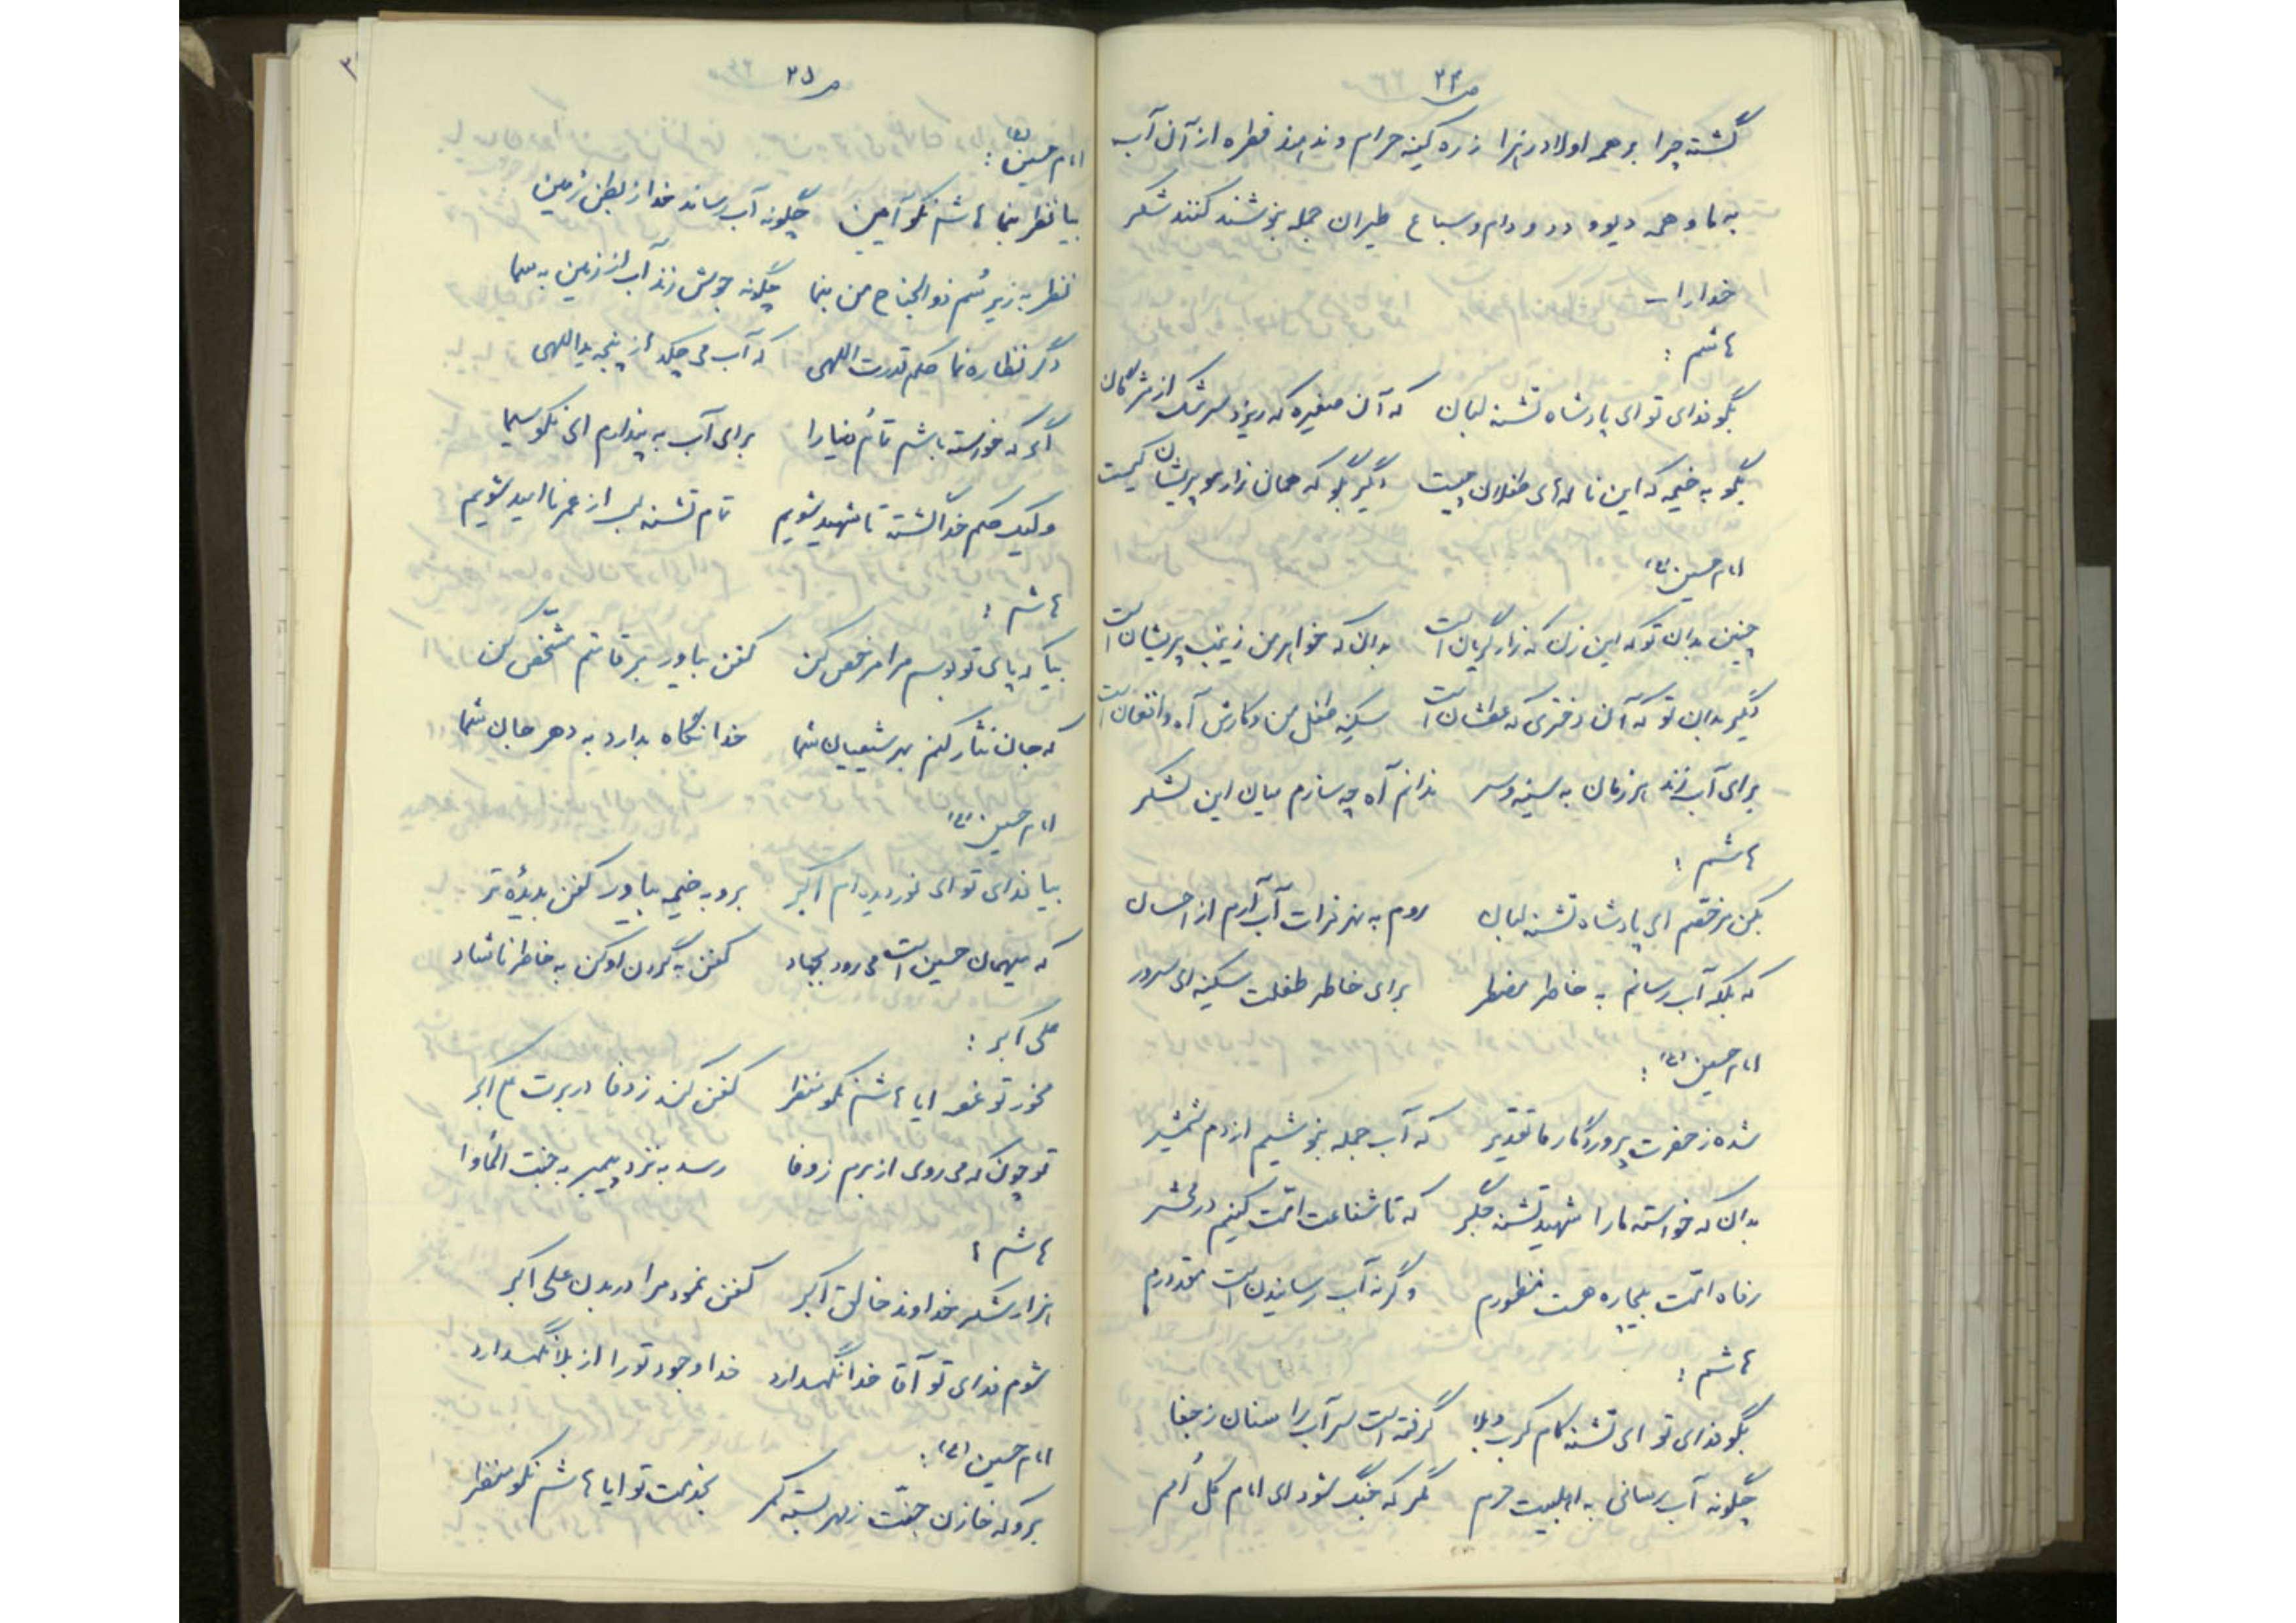 ص ۳۴
گشته چرا بر همه اولاد زهرا ز ره کینه حرام و ندهند قطره از آن آب
به ما و همه دیو و دد و دام و سباع طیران جمله بنوشند کنند شکر
خدا را
هاشم :
بگو فدای تو ای پادشاه تشنه لبان که آن صغیره که ریزد سرشک از مژگان
بگو به خیمه که این ناله‌های طفلان چیست دگر بگو که همان زار مو پریشان کیست
امام حسین (ع)
چنین بدان تو که این زن که زار گریان است بدان که خواهر من زینب پریشان است
دگر بدان تو که آن دختری که عطشان است سکینه طفل من و کارش آه و افغان است
برای آب زند هر زمان به سینه و سر ندانم آه چه سازم میان این لشکر
هاشم :
بکن مرخصم ای پادشاه تشنه لبان روم به نهر فرات آب آرم از احسان
که بلکه آب رسانم به خاطر مضطر برای خاطر طفلت سکینه ای سرور
امام حسین (ع) :
شده ز حضرت پروردگار ما تقدیر که آب جمله بنوشیم از دم شمشیر
بدان که خواسته ما را شهید تشنه جگر که تا شفاعت امّت کنیم در محشر
رفاه امّت بیچاره هست منظورم وگرنه آب رسانیدن است مقدورم
هاشم :
بگو فدای تو ای تشنه کام کرب و بلا گرفته است سر آب را سنان ز جفا
چگونه آب رسانی به اهلبیت حرم مگر که جنگ شود ای امام کل اُمم
ص ۳۵
امام حسین (ع) :
بیا نظر بنما هاشم نکو آیین چگونه آب رساند خدا ز بطن زمین
نظر به زیر سُم ذوالجناح من بنما چگونه جوش زند آب از زمین به سما
دگر نظاره نما حکم قدرت اللهی که آب می‌چکد از پنجه یداللهی
اگر که خواسته باشم تمام دنیا را برای آب به ای نکو سیما
ولیک حکم خدا گشته تا شهید شویم تمام تشنه لب از عمر ناامید شویم
هاشم :
بیا که پای تو بوسم مرا مرخص کن کفن بیاور بر قامتم مشخّص کن
که جان نثار کنم بهر شیعیان شما خدا نگاه بدارد به دهر جان شما
امام حسین (ع)
بیا فدای تو ای نور دیده‌ام اکبر برو به خیمه بیاور کفن بدیدۀ تر
که میهمان حسین است می‌رود بجهاد کفن به گردن او کن به خاطر ناشاد
علی اکبر :
مخور تو غصه ایا هاشم نکو منظر کفن کند ز وفا در برت علی اکبر
تو چون که می‌روی از برم ز وفا رسد به نزد پیمبر به جنّت المأوا
هاشم :
هزار شکر خداوند خالق اکبر کفن نمود مرا در بدن علی اکبر
شوم فدای تو آقا خدا نگهدارد خدا وجود تو را از بلا نگهدارد
امام حسین (ع) :
برو که خازن جنّت ز مهر بسته کمر بخدمت تو ایا هاشم نکو منظر